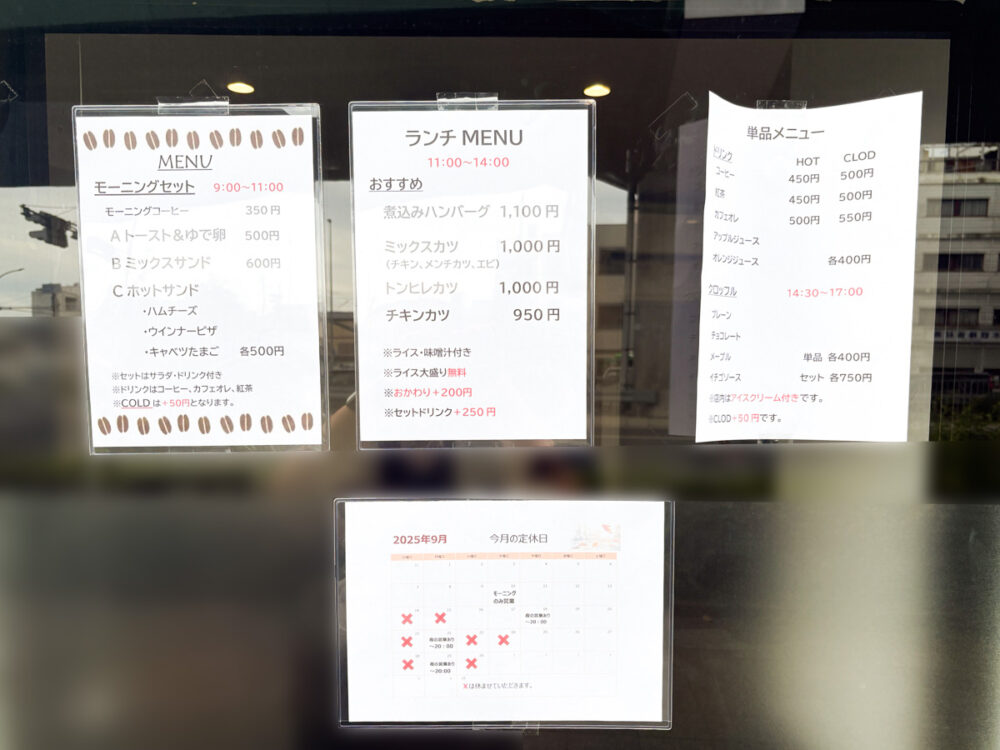 MENU
モーニングセット 9:00~11:00
モーニングコーヒー 350円
A トースト&ゆで卵 500円
B ミックスサンド 600円
C ホットサンド
・ハムチーズ
・ウインナーピザ
・キャベツたまご 各500円
※セットはサラダ・ドリンク付き
※ドリンクはコーヒー、カフェオレ、紅茶
※COLD は+50円となります。
ランチ MENU
11:00~14:00
おすすめ
煮込みハンバーグ 1,100円
ミックスカツ 1,000円
(チキン、メンチカツ、エビ)
トンヒレカツ 1,000円
チキンカツ 950円
※ライス・味噌汁付き
※ライス大盛り無料
※おかわり+200円
※セットドリンク+250円
単品メニュー
ドリンク HOT CLOD
コーヒー 450円 500円
紅茶 450円 500円
カフェオレ 500円 550円
アップルジュース
オレンジジュース 各400円
クロッフル 14:30~17:00
プレーン
チョコレート
メープル 単品 各400円
イチゴソース セット 各750円
※店内はアイスクリーム付きです。
※CLOD+50円です。
2025年9月 今月の定休日
モーニング
のみ営業
夜の営業あり
~20:00
夜の営業あり
~20:00
夜の営業あり
~20:00
×は休ませていただきます。